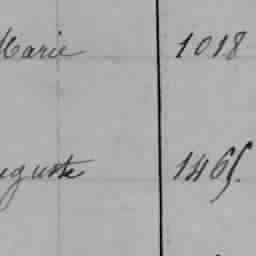 Marie 1018
Auguste 1465.